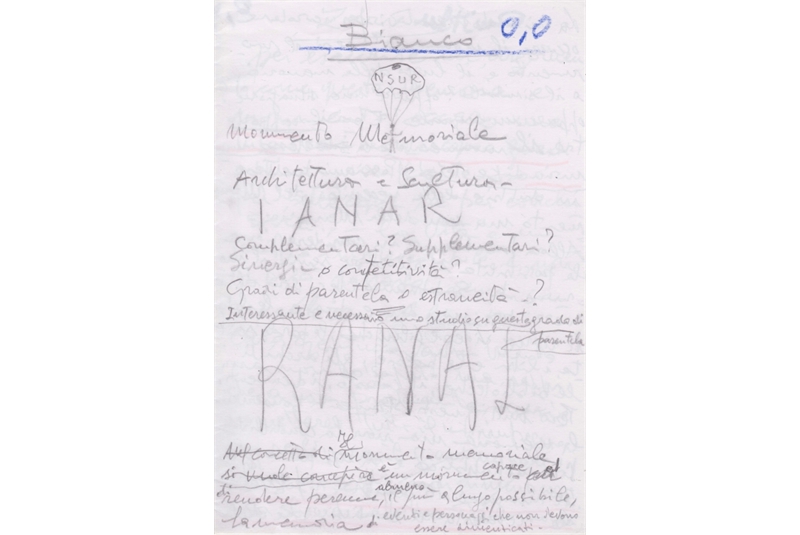 Bianco 0,0
NSUR
Monumento Memoriale
Architettura e Scultura -
IANAR
Complementari? Supplementari?
Sinergia o competitività?
Gradi di parentela o estraneità - ?
Interessante e necessario uno studio su questo grado di
parentela
RANAI
Nel concetto di Il monumento memoriale
si vuole compire è un monumento capace
di rendere perenne, almeno il più a lungo possibile,
la memoria di eventi e personaggi che non devono
essere dimenticati.